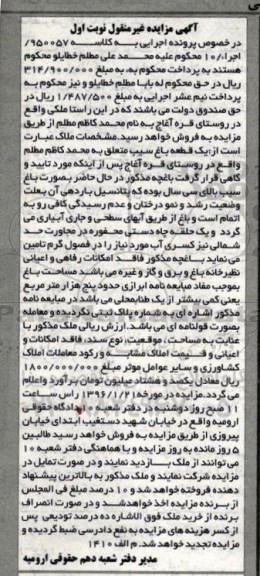 آگهی مزایده غیرمنقول نوبت اول
در خصوص پرونده اجرایی به کلاسه ۹۵۰۰۵۷/
اجرا/۱۰ محکوم علیه محمد علی مطلم خطایلو محکوم
هستند به پرداخت محکوم به، به مبلغ ۳۱۴/۹۰۰/۰۰۰
ریال در حق محکوم له بابا مطلم خطایلو و نیز محکوم به
پرداخت نیم عشر اجرایی به مبلغ ۱/۴۸۷/۵۰۰ ریال در
حق صندوق دولت می باشند که در این راستا ملکی واقع
در روستای قره آغاج به نام محمد کاظم مطلم از طریق
مزایده به فروش خواهد رسید. مشخصات ملاک عبارت
است از: یک قطعه باغ سیب متعلق به محمد کاظم مطلم
واقع در روستای قره آغاج پس از اینکه مورد تایید و
گاهی قرار گرفت باغچه مذکور در حال حاضر بصورت باغ
سیب بالای سی سال بوده که پتانسیل باردهی آن بعلت
وضعیت رشد و نمو درختان و عدم رسیدگی کافی رو به
اتمام است و باغ از طریق آبهای سطحی و جاری آبیاری می
گردد و یک حلقه چاه دستی محفوره در مجاورت حد
شمالی نیز کسری آب مورد نیاز را در فصول گرم تامین
می نماید باغچه مذکور فاقد امکانات رفاهی و اعیانی
نظیر خانه باغ و برق و گاز و غیره می باشد مساحت باغ
بموجب مفاد مبایعه نامه ابرازی حدود پنج هزار متر مربع
یعنی کمی بیشتر از یک طناب محلی می باشد در مبایعه نامه
مذکور اشاره ای به شماره پلاک ثبتی نگردیده و معامله
بصورت قولنامه ای می باشد. ارزش ریالی ملک مذکور با
عنایت به مساحت، موقعیت، نوع سند، فاقد امکانات و
اعیانی و قیمت املاک مشابه و رکود معاملات املاک
کشاورزی و سایر عوامل موثر مبلغ ۱/۸۰۰/۰۰۰/۰۰۰
ریال معادل یکصد و هشتاد میلیون تومان برآورد و اعلام
می گردد. مزایده در مورخه ۱۳۹۶/۱/۲۱ راس ساعت
صبح روز دوشنبه در دفتر شعبه دادگاه حقوقی
ارومیه واقع در خیابان شهید دستغیب ابتدای خیابان
پیروزی از طریق مزایده به فروش خواهد رسید طالبین
۵ روز مانده به روز مزایده و با هماهنگی دفتر شعبه ۱۰
می توانند از ملک بازدید نمایند و در صورت تمایل در
مزایده شرکت نمایند و ملک مذکور به بالاترین پیشنهاد
دهنده فروخته خواهد شد و ۱۰ درصد مبلغ فی المجلس
از برنده مزایده اخذ خواهد شد و در صورت انصراف
برنده از خرید ملک فوق الاشاره ده درصد تودیعی پس
از کسر هزینه های مزایده به نفع دادرسی ضبط گردیده و
مزایده تجدید خواهد شد. م الف ۱۴۱۰
مدیر دفتر شعبه دهم حقوقی ارومیه